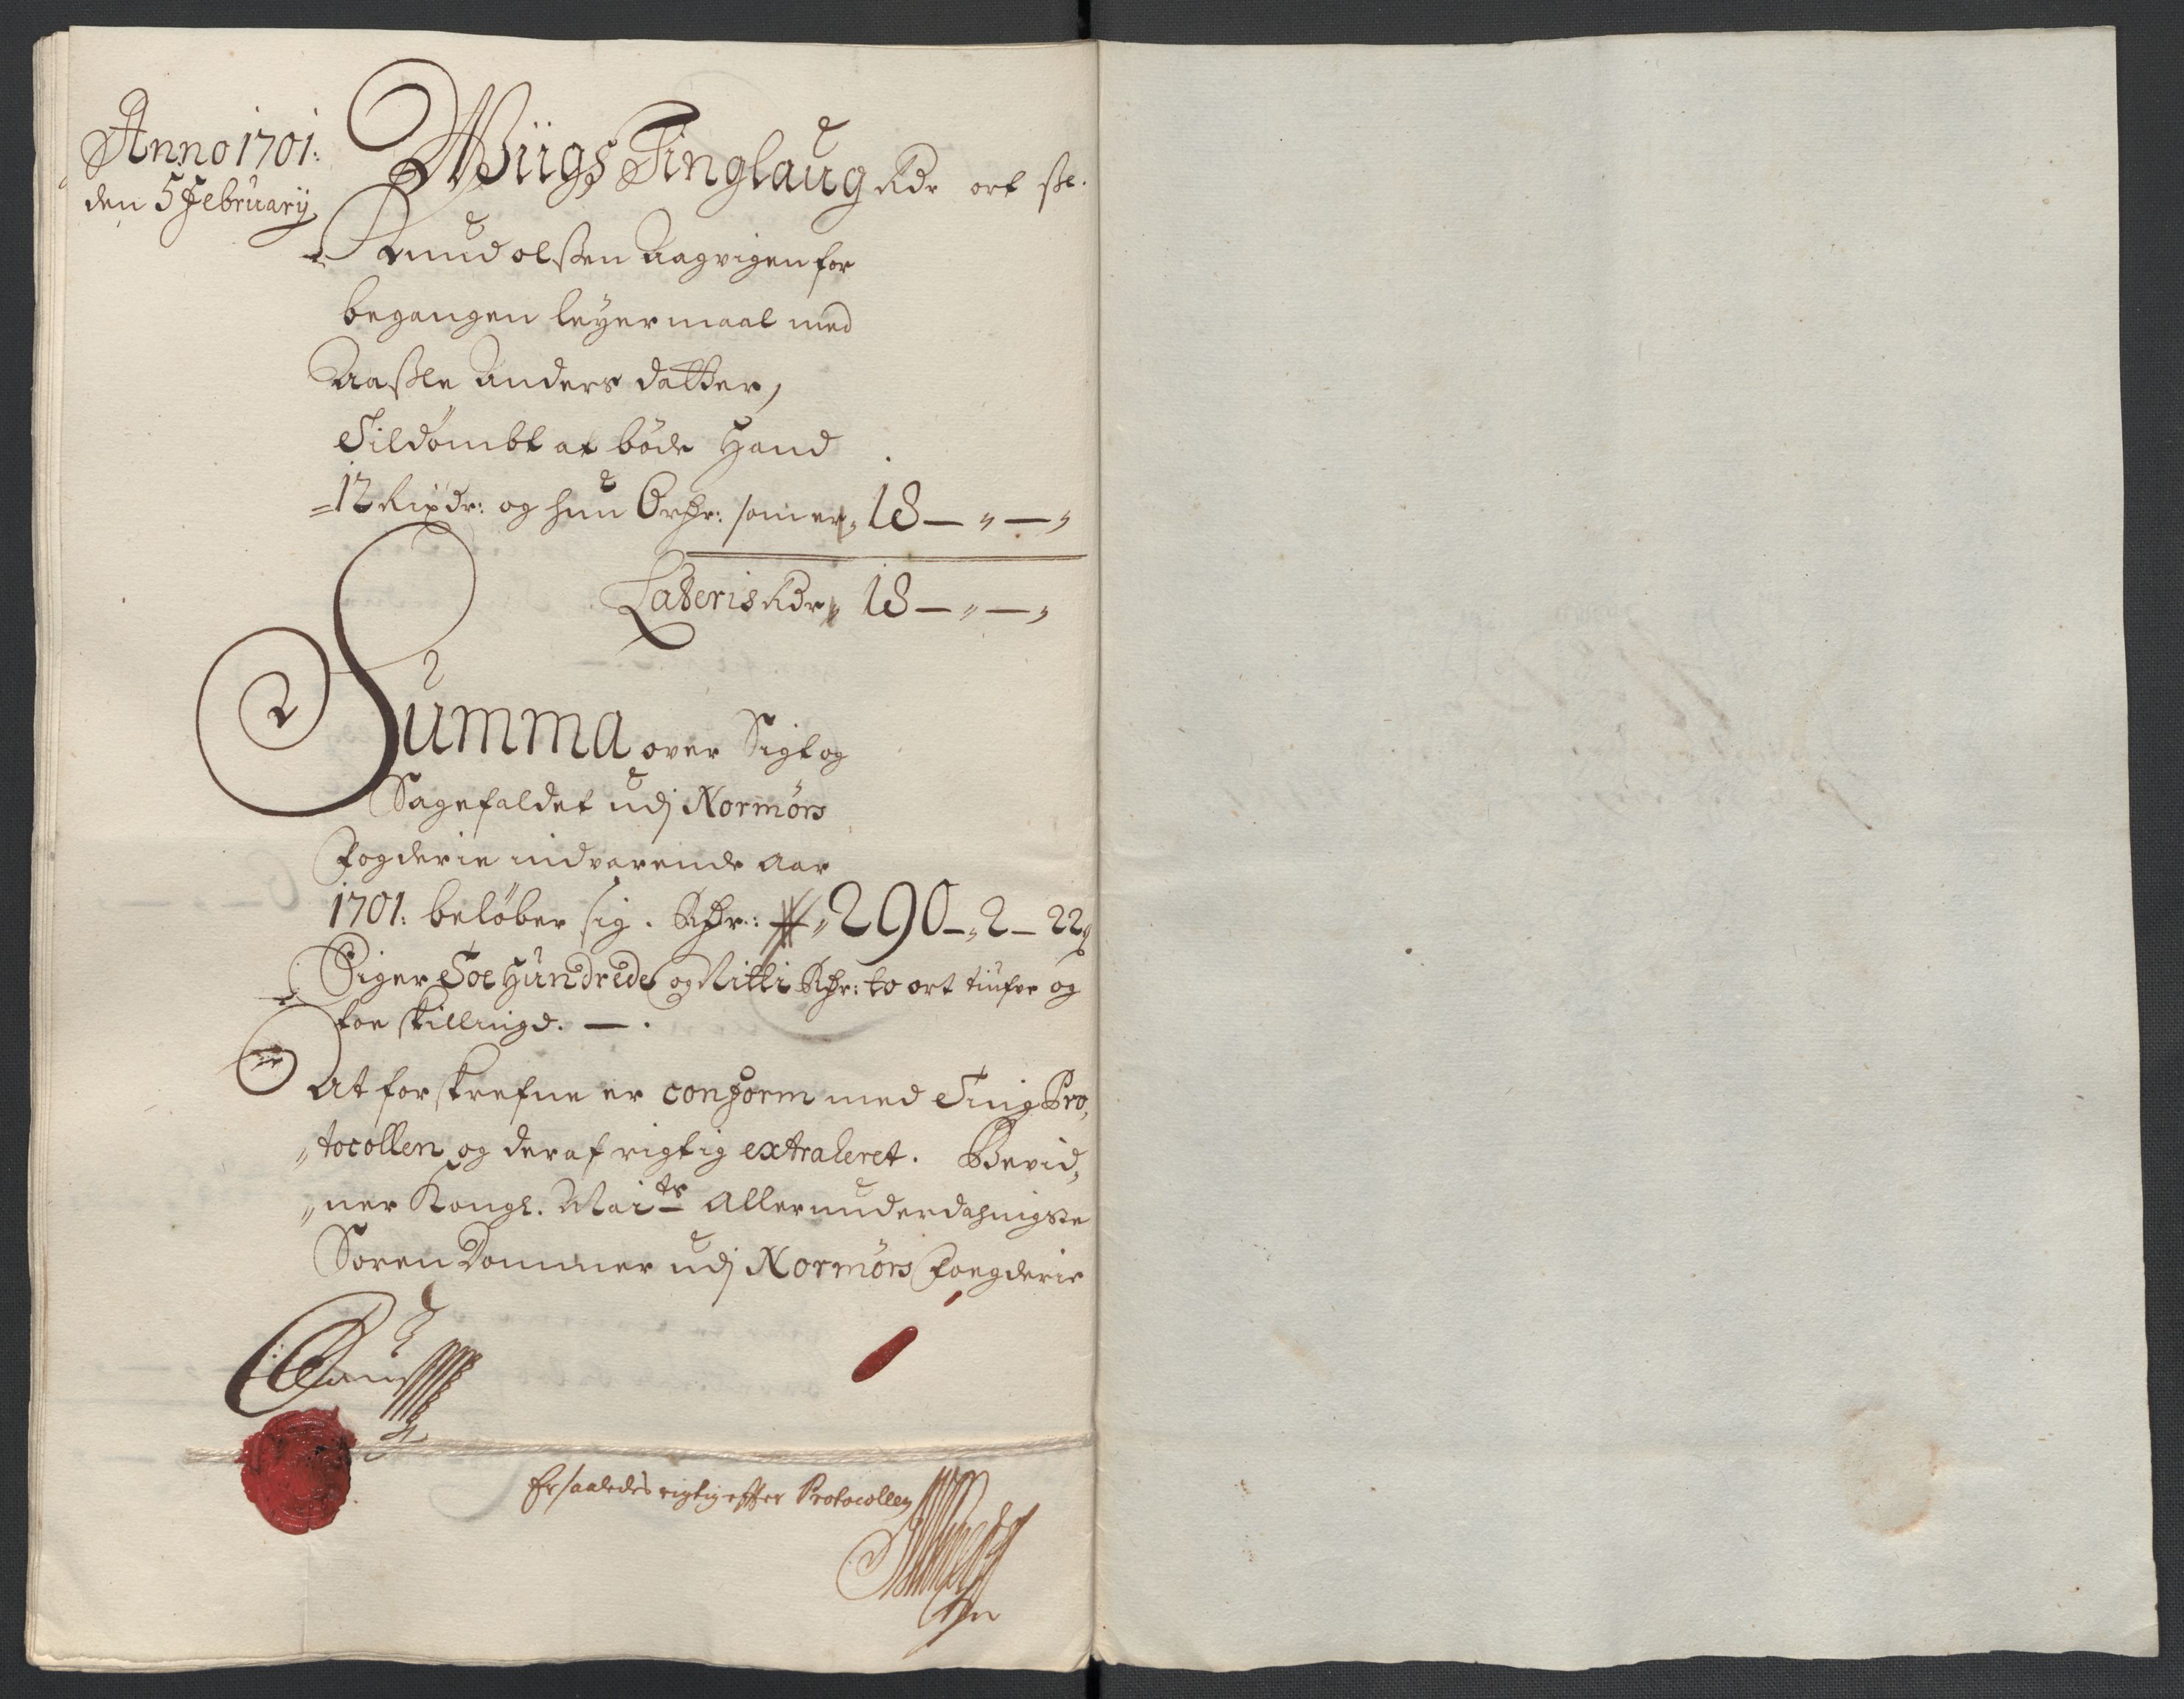 Anno 1701:
den 5 February
Wiigs Tinglaug Rdr ort ße.
Knud olßen Aagvigen for
begangen leyermaal med
Aaßle Anders datter,
Tildømbt at bøde Hand
12 Rixdr: og hun 6 rdr: som er 18 — „ — „
Lateris Rdr „ 18 — „ — „
Summa over Sigt og
Sagefaldet udj Normørs
Fogderie indværende Aar
1701. beløber sig. Rdr: „ 290 — 2 — 22
Siger Toe Hundrede og Nitti Rdr: to ort tiufve og
toe skillingd. — .
At forskrefne er conform med Ting Pro„
„tocollen og deraf rigtig extraheret. Bevid„
„ner Kongl. Maitts Allerunderdahnigste
Soren Dommer udj Normørs Foegderie
Er saaledes rigtig efter Protocollen